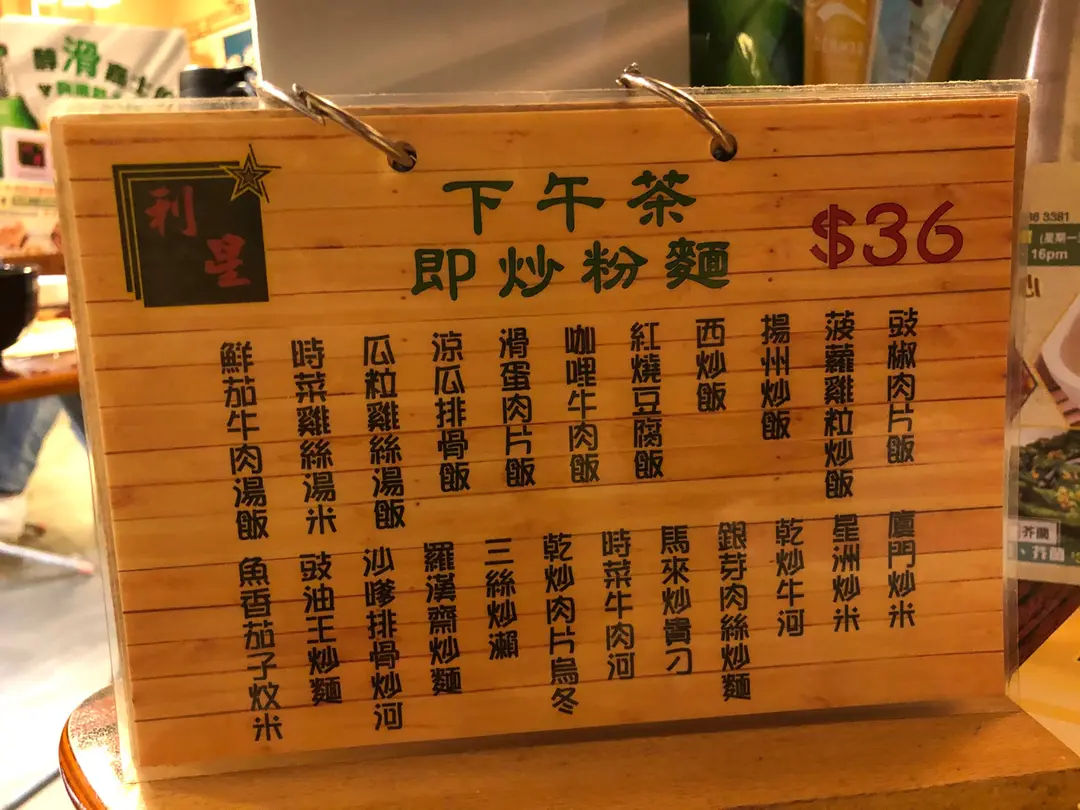 利星
下午茶
即炒粉麵
$36
豉椒肉片飯
菠蘿雞粒炒飯
揚州炒飯
西炒飯
紅燒豆腐飯
咖哩牛肉飯
滑蛋肉片飯
涼瓜排骨飯
瓜粒雞絲湯飯
時菜雞絲湯米
鮮茄牛肉湯飯
廈門炒米
星洲炒米
乾炒牛河
銀芽肉絲炒麵
馬來炒貴刁
時菜牛肉河
乾炒肉片烏冬
三絲炒瀨
羅漢齋炒麵
沙嗲排骨炒河
豉油王炒麵
魚香茄子炆米
滑
3381
16pm
芥蘭